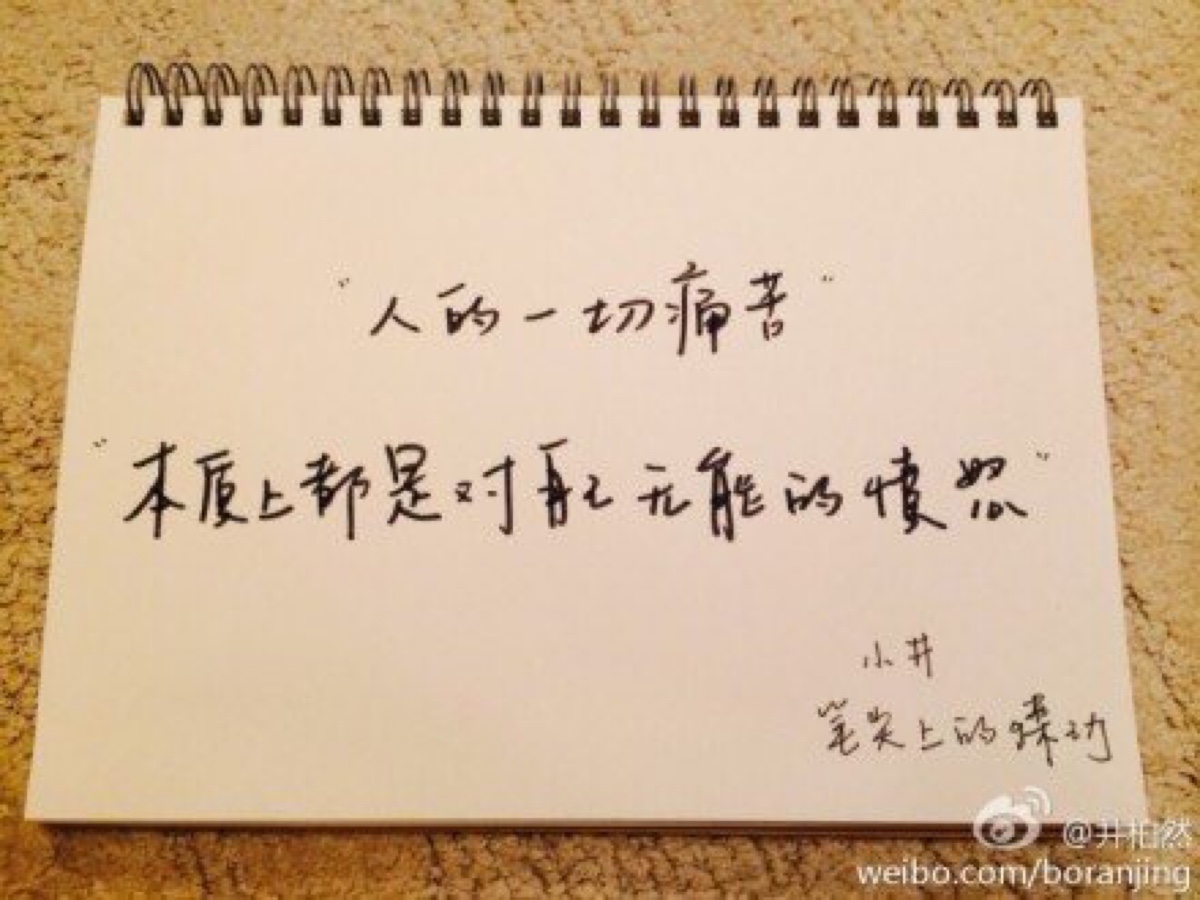 "人的一切痛苦"
"本质上都是对自己无能的愤怒"
小井
笔尖上的躁动
@井柏然
weibo.com/boranjing